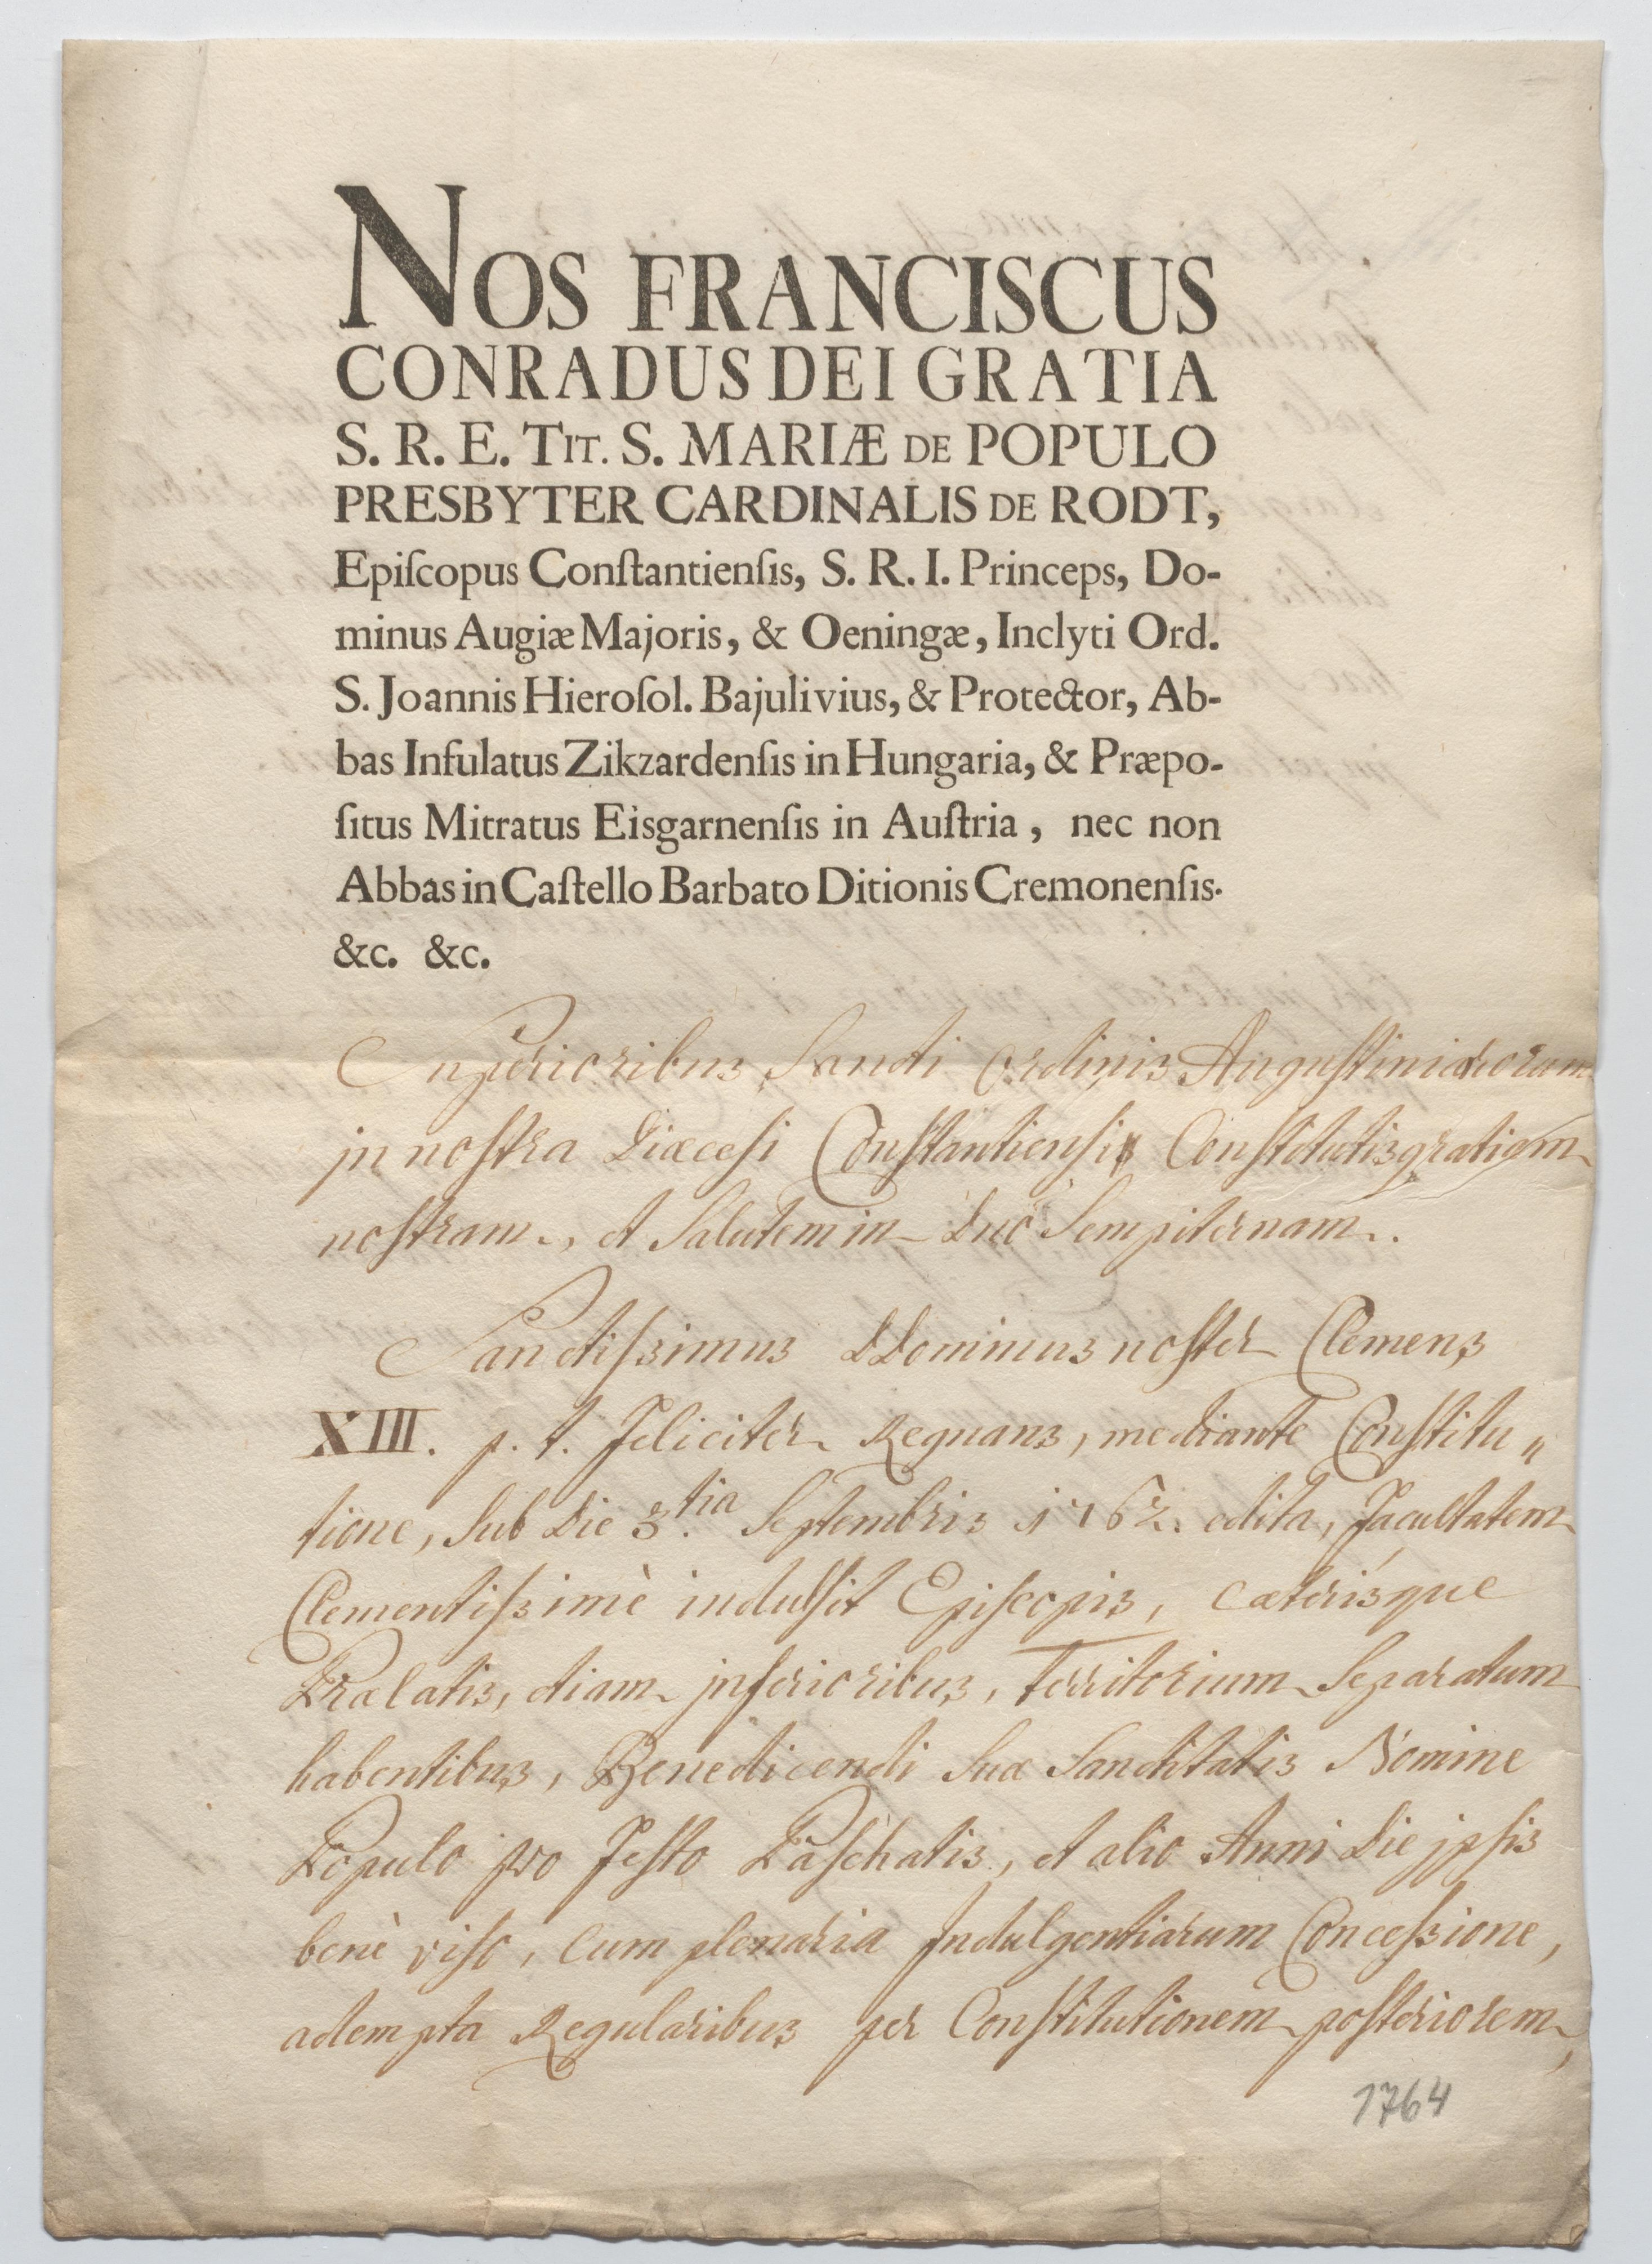 NOS FRANCISCUS
CONRADUS DEI GRATIA
S. R. E. TIT. S. MARIÆ DE POPULO
PRESBYTER CARDINALIS DE RODT,
Epiſcopus Conſtantienſis, S. R. I. Princeps, Do-
minus Augiæ Majoris, & Oeningæ, Inclyti Ord.
S. Joannis Hieroſol. Bajulivius, & Protector, Ab-
bas Infulatus Zikzardenſis in Hungaria, & Præpo-
ſitus Mitratus Eisgarnenſis in Auſtria, nec non
Abbas in Caſtello Barbato Ditionis Cremonenſis.
&c. &c.
Superioribus Sancti Ordinis
in noſtra Diœceſi Conſtantienſi Conſtitutis gratiam
noſtram, et Salutem in Dnō Sempiternam.
Sanctiſsimus DDominus noſter Clemens
XIII. p. t. Feliciter Regnans, mediante Conſtitu„
tione, Sub Die 3.tia Septembris 1762. edita, Facultatem
Clementiſsimè indulſit Epiſcopis, cæterisque
Prælatis, etiam inferioribus, Territorium Separatum
habentibus, Benedicendi Suæ Sanctitatis Nomine
Populo pro Feſto Paſchatis, et alio Anni Die jpſis
benè viſo, Cum plenaria Indulgentiarum Conceſsione,
adempta Regularibus per Conſtitutionem poſteriorem,
1764